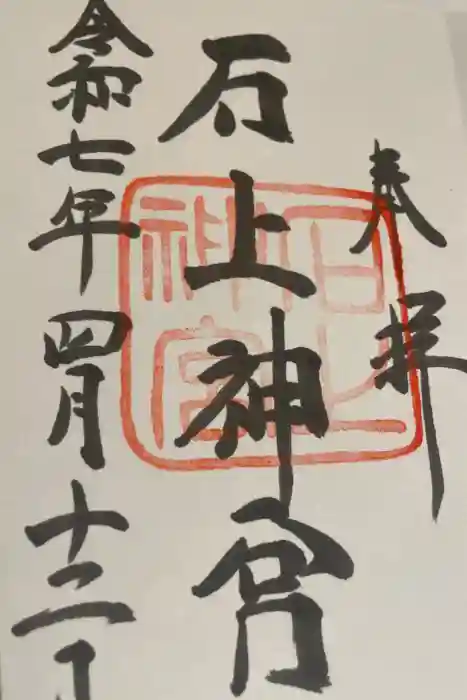 奉拝
石上神宮
令和七年四月十二日
石上
神宮